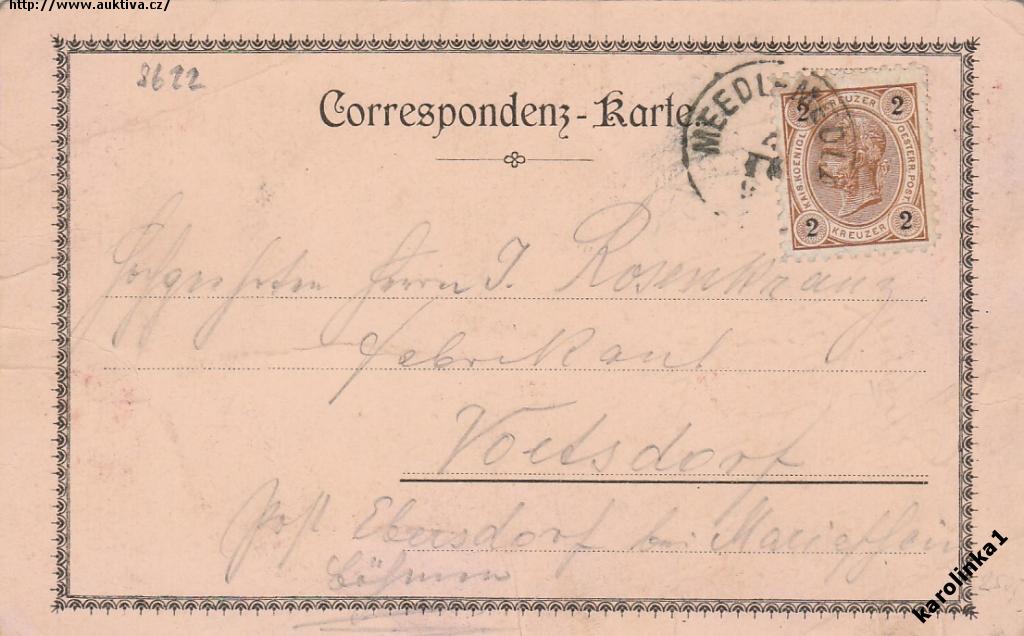 http://www.auktiva.cz/
8622
Correspondenz-Karte.
MEEDL-M
2 KREUZER 2
KAIS. KOENIGL. OESTERR. POST
2 KREUZER 2
Herrn J. Rosenkranz
Fabrikant
Voitsdorf
Post Ebersdorf bei
Böhmen
karolinka1